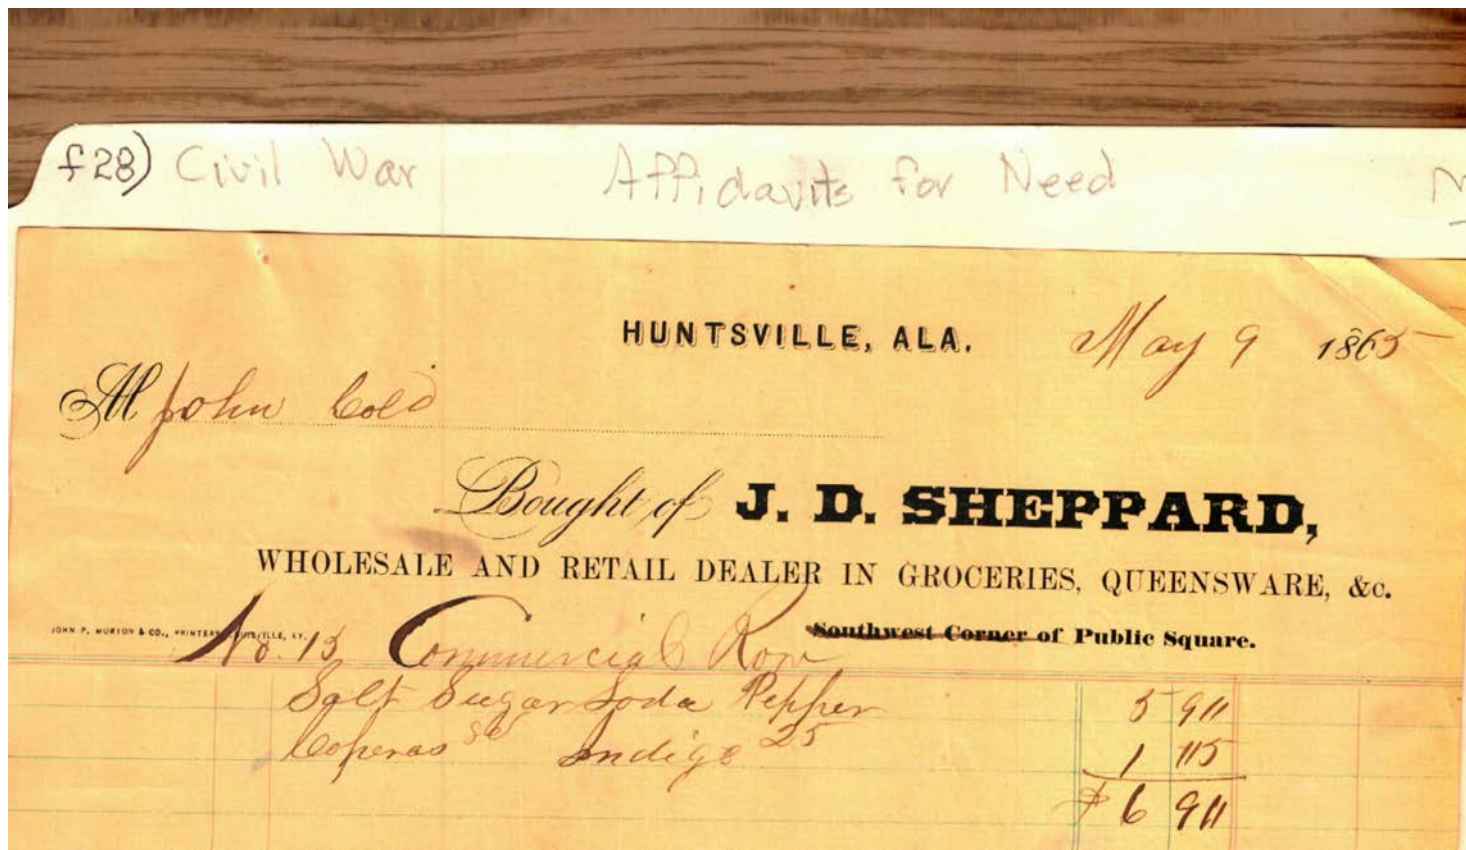 f28) Civil War Affidavits for Need
HUNTSVILLE, ALA. May 9 1865
M John Cold
Bought of J. D. SHEPPARD,
WHOLESALE AND RETAIL DEALER IN GROCERIES, QUEENSWARE, &c.
JOHN P. MORTON & CO., PRINTERS, LOUISVILLE, KY.
No. 15 Commercial Row Southwest Corner of Public Square.
Salt Sugar Soda Pepper 5
Coperas Indigo 25 1
$ 6